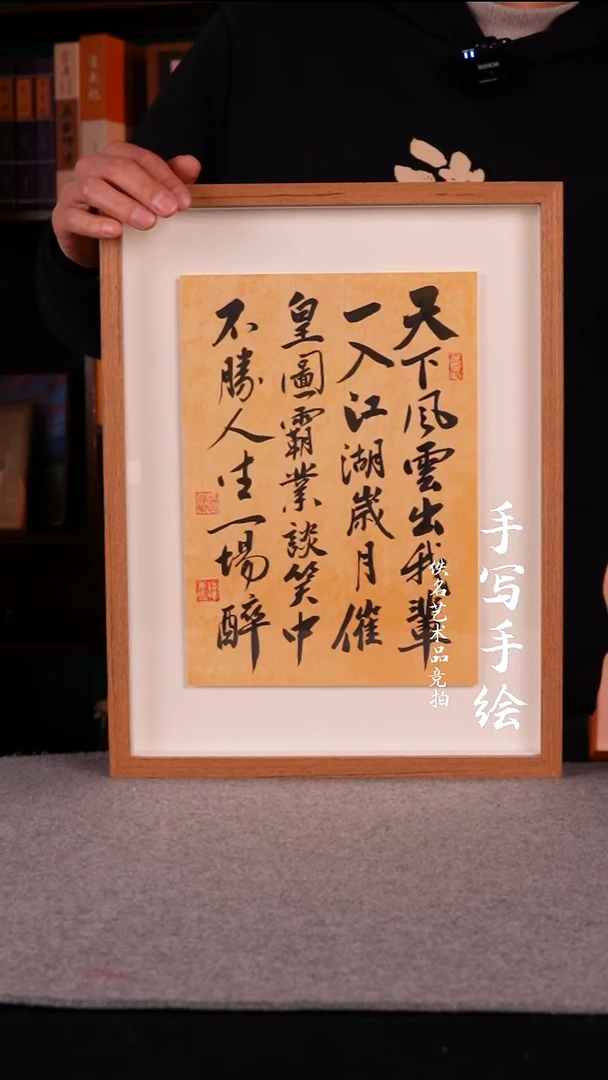 天下風雲出我輩
一入江湖歲月催
皇圖霸業談笑中
不勝人生一場醉
手写手绘
佚名艺术品竞拍